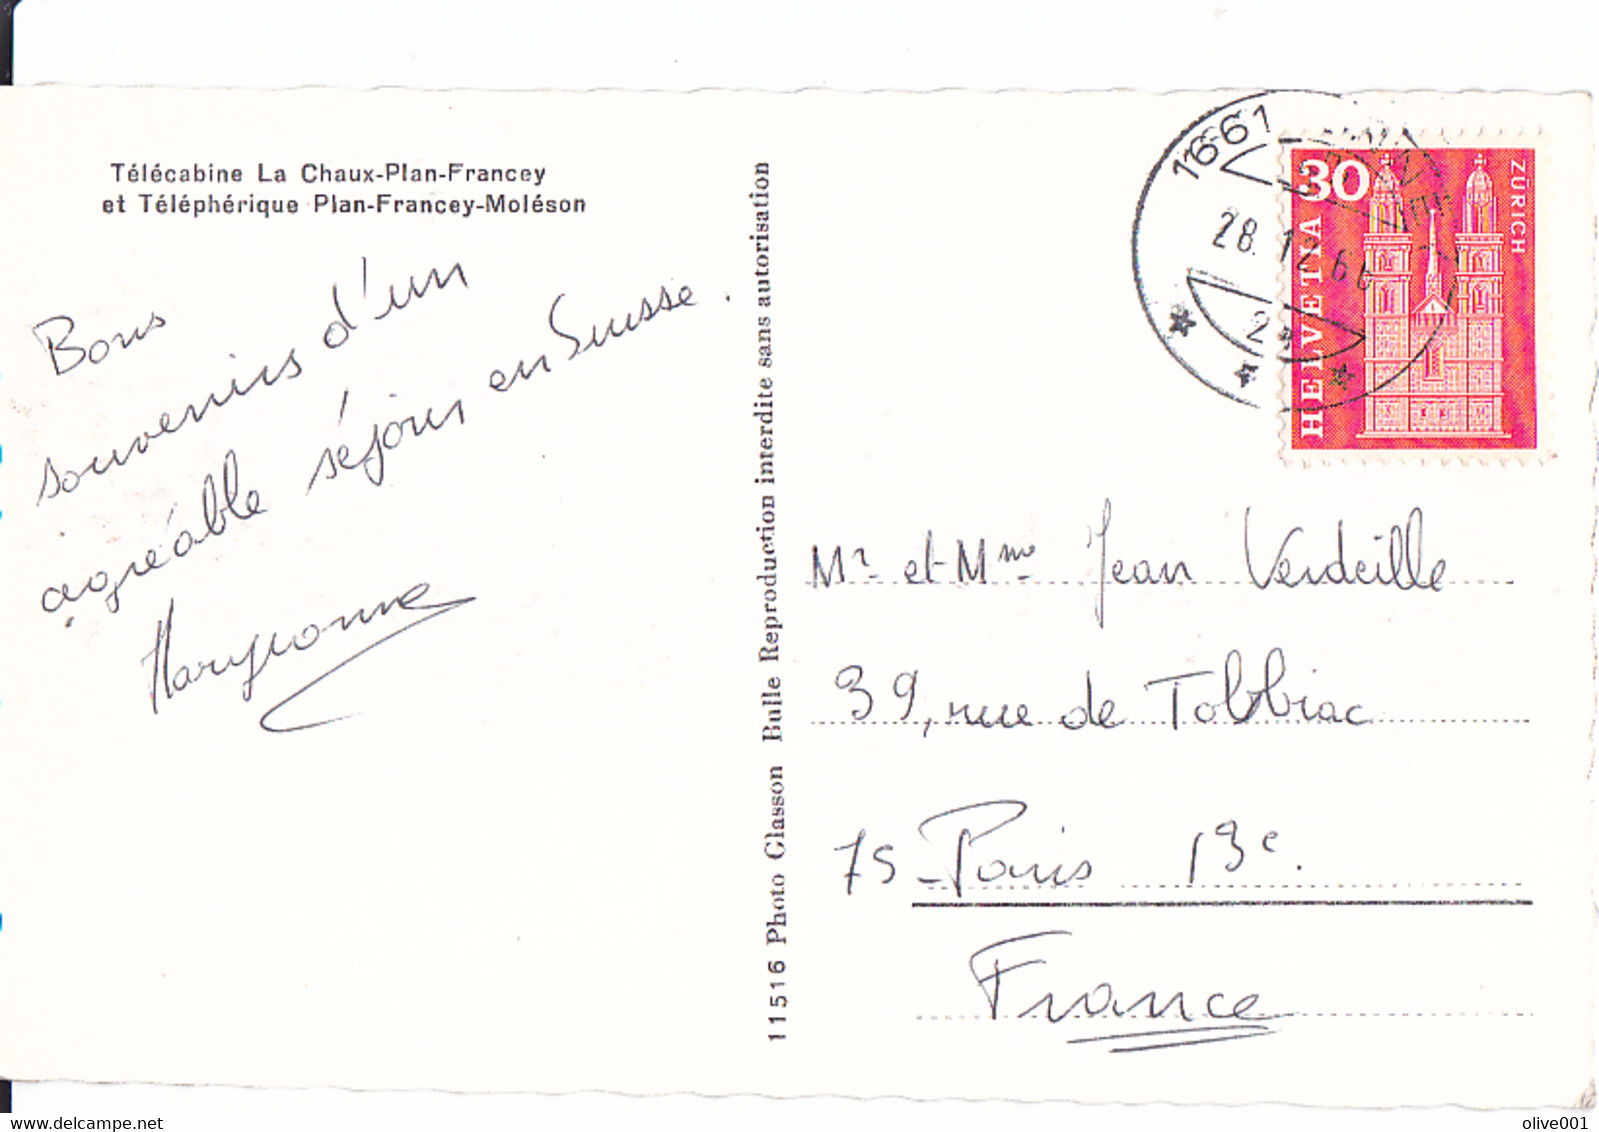 Télécabine La Chaux-Plan-Francey
et Téléphérique Plan-Francey-Moléson
Bons
souvenirs d'un
agréable séjour en Suisse.
11516 Photo Glasson Bulle Reproduction interdite sans autorisation
1661
28.12.66
30
HELVETIA
ZÜRICH
Mr et Mme Jean Verdeille
39, rue de Tolbiac
75-Paris 13e.
France
olive001